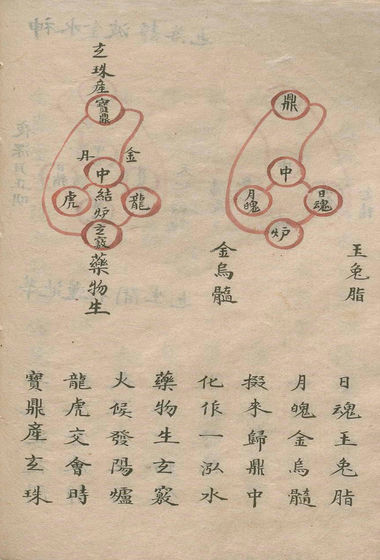 鼎
中
日魂
月魄
炉
玉兔脂
金烏髓
玄珠產寶鼎
金
丹
中
結
炉
龍
虎
玄竅
藥物生
日魂玉兔脂
月魄金烏髓
掇來歸鼎中
化作一泓水
藥物生玄竅
火候發陽爐
龍虎交會時
寶鼎產玄珠